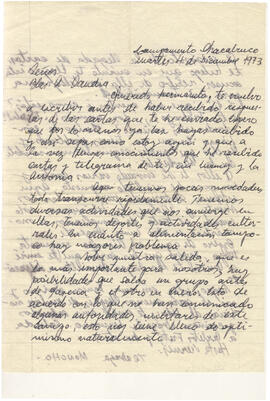 Campamento Chacabuco
martes 11 de Diciembre 1973
Señor
Querido hermanito, te vuelvo
a escribir antes de haber recibido respues-
tas de las cartas que te he enviado espero
que por lo menos las hayas recibido
y así sepas como estoy aquí y que a
la vez tienes conocimiento que he recibido
cartas y telegramas de ti
Aquí tenemos pocas novedades
todo transcurre rápidamente. Tenemos
diversas actividades que nos
deporte y actividades cultu-
rales. En cuanto a alimentación tampo-
co hay mayores problemas
Sobre nuestra salida, que es
lo más importante para nosotros, hay
posibilidades que salga un grupo antes
de pascua y el otro en Enero. Esto de
acuerdo con lo que nos han comunicado
algunas autoridades militares de este
campo. esto nos tiene llenos de opti-
mismo naturalmente